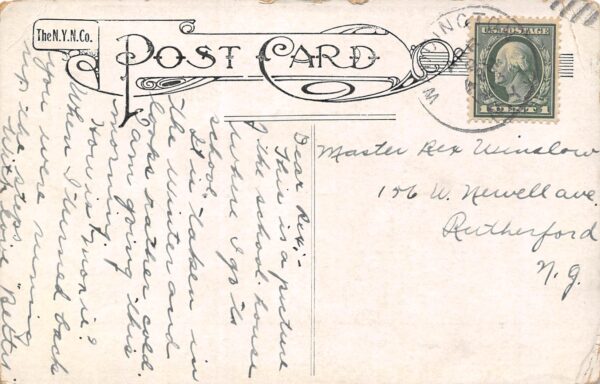 The N.Y.N.Co.
POST CARD
INGTO
U.S. POSTAGE
1 CENT 1
Master Rex Winslow
176 W. Newell ave.
Rutherford
N.J.
Dear Rex:-
This is a picture
of the school house
where I go to
school.
It is taken in
the winter and
looks rather cold.
I am going this
morning.
How is monie?
When I turned back
you were running
up the steps
With love Betty.